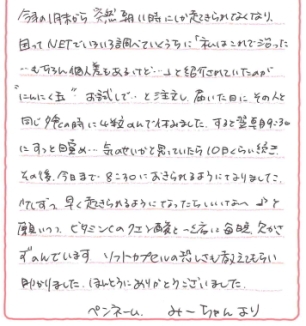 今年の1月から突然朝11時にしか起きられなくなり、
困ってNETでいろいろ調べていくうちに「私はこれで治った
…もちろん個人差もあるけど…」と紹介されていたのが
"にんにく玉" お試しで…と注文し、届いた日にその人と
同じ夕食の時に4粒のんで休みました。すると翌朝9:30
にすっと目覚め…気のせいかと思っていたら10日くらい続き
その後、今日まで8:30におきられるようになりました。
早く起きられるようになったらいいなぁ♪と
願いつつ、ビタミンCのクエン酸と一緒に毎日、欠かさ
ずのんでいます ソフトカプセルの恐しさも教えてもらい
助かりました。ほんとうにありがとうございました。
ペンネーム、みーちゃんより